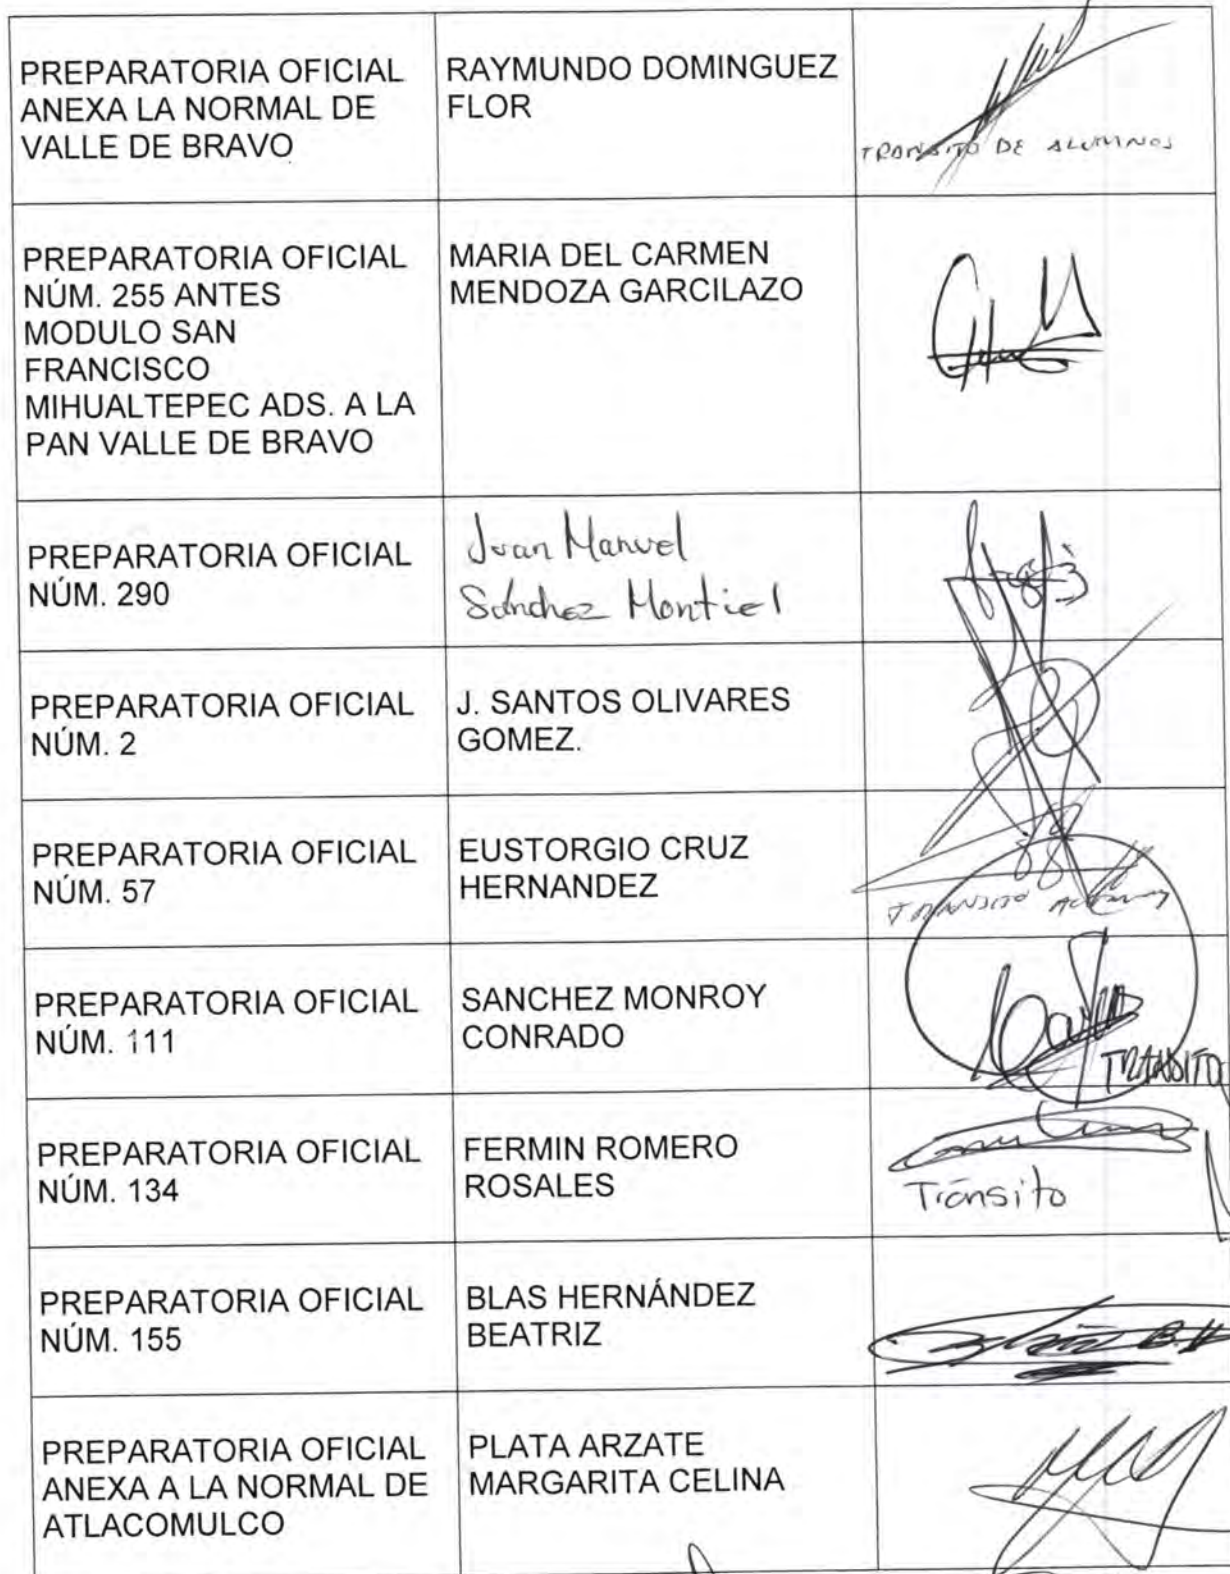 PREPARATORIA OFICIAL
ANEXA LA NORMAL DE
VALLE DE BRAVO
RAYMUNDO DOMINGUEZ
FLOR
TRANSITO DE ALUMNOS
PREPARATORIA OFICIAL
NÚM. 255 ANTES
MODULO SAN
FRANCISCO
MIHUALTEPEC ADS. A LA
PAN VALLE DE BRAVO
MARIA DEL CARMEN
MENDOZA GARCILAZO
PREPARATORIA OFICIAL
NÚM. 290
Juan Manuel
Sánchez Montiel
PREPARATORIA OFICIAL
NÚM. 2
J. SANTOS OLIVARES
GOMEZ.
PREPARATORIA OFICIAL
NÚM. 57
EUSTORGIO CRUZ
HERNANDEZ
TRANSITO
PREPARATORIA OFICIAL
NÚM. 111
SANCHEZ MONROY
CONRADO
TRANSITO
PREPARATORIA OFICIAL
NÚM. 134
FERMIN ROMERO
ROSALES
Tránsito
PREPARATORIA OFICIAL
NÚM. 155
BLAS HERNÁNDEZ
BEATRIZ
PREPARATORIA OFICIAL
ANEXA A LA NORMAL DE
ATLACOMULCO
PLATA ARZATE
MARGARITA CELINA